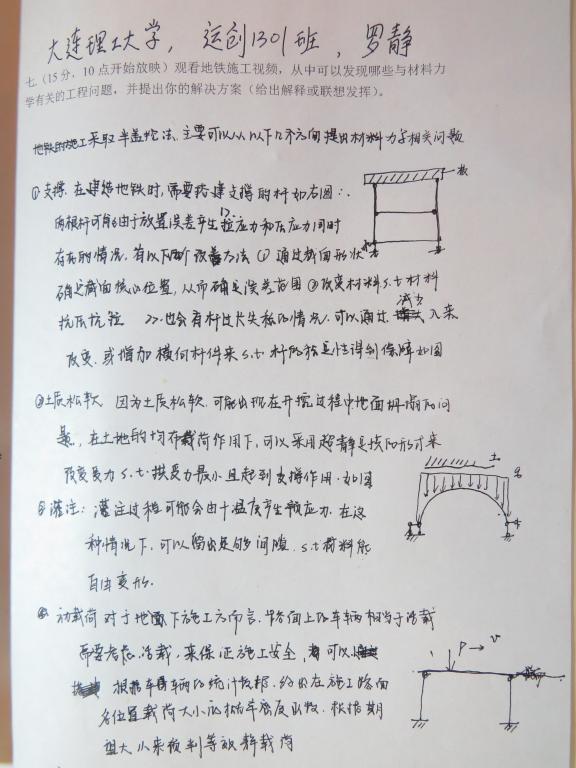 大连理工大学，运创1301班，罗静
七.（15分，10点开始放映）观看地铁施工视频，从中可以发现哪些与材料力
学有关的工程问题，并提出你的解决方案（给出解释或联想发挥）。
地铁的施工采取半盖挖法，主要可以从以下几个方面提出材料力学相关问题
①支撑.在建造地铁时,需要搭建支撑的杆如右图:.
板
两根杆可能由于放置误差产生拉应力和压应力同时
存在的情况.有以下两个改善方法①通过截面形状
确定截面核心位置,从而确定误差范围②改变材料s.t材料
抗压抗拉 >>.也会有杆过长失稳的情况.可以通过减少入来
改变.或增加横向杆件来s.t.杆的稳定性得到保障如图
②土质松软 因为土质松软.可能出现在开挖过程中地面坍塌的问
题.在土地的均布载荷作用下,可以采用超静定拱的形式来
土
改变受力s.t.拱受力最小且起到支撑作用.如图
③灌注:灌注过程可能会由于温度产生预应力.在这
种情况下.可以留出足够间隙.s.t材料能
自由变形.
④动载荷 对于地面下施工方而言.路面上的车辆相当于活载
需要考虑活载,来保证施工安全,可以
P→v
根据车辆的统计数据.给出在施工路面
各位置载荷大小的概率密度函数.根据期
望大小来预判等效静载荷